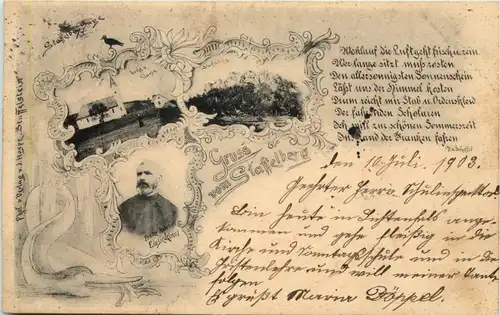 Wohlauf die Luft geht frisch u. rein
Wer lange sitzt muß rosten
Den allersonnigsten Sonnenschein
Läßt uns der Himmel kosten
Drum reicht mir Stab u. Ordenskleid
Der fahrenden Scholaren
Ich will zur schönen Sommerszeit
Ins Land der Franken fahren
Gruss
vom Staffelberg
den 10. Juli. 1903.
Geehrter Herr Schulinspektor.
Bin heute in Lichtenfels ange
kommen und gehe fleißig in die
Kirche und Sonntagsschule und in die
Christenlehre und will meiner Tante
folgen
Es grüßt Maria Döppel.